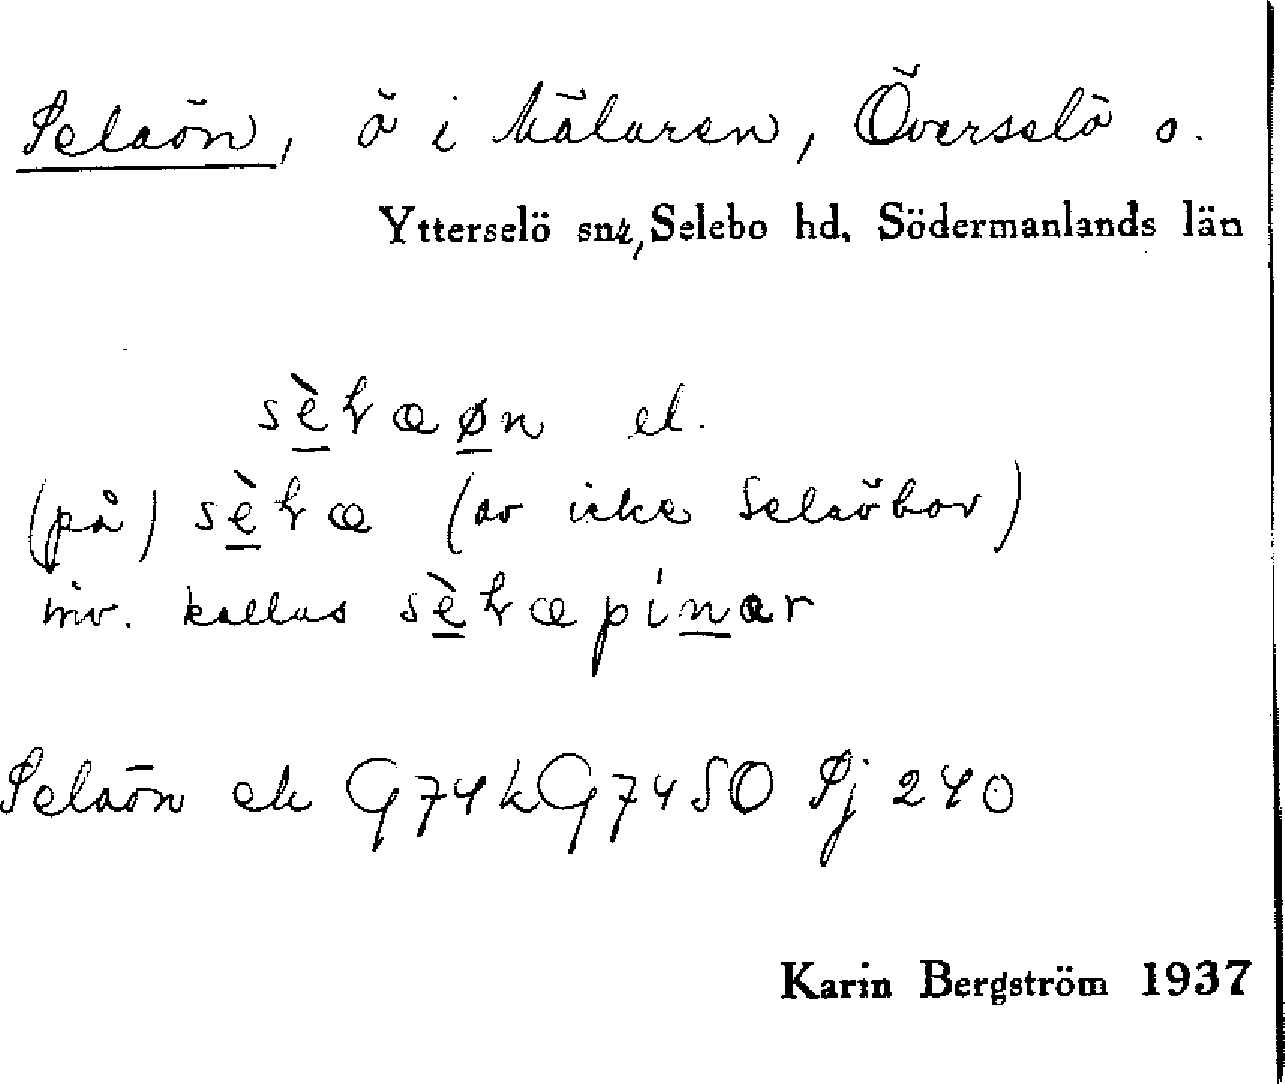 Selaön, ö i Mälaren, Överselö o.
Ytterselö snr, Selebo hd. Södermanlands län
sèɽaøn el.
(på) sèɽa (av icke Selaöbor)
inv. kallas sèɽapinar
Selaön ek G74 k G74 SO Sj 240
Karin Bergström 1937